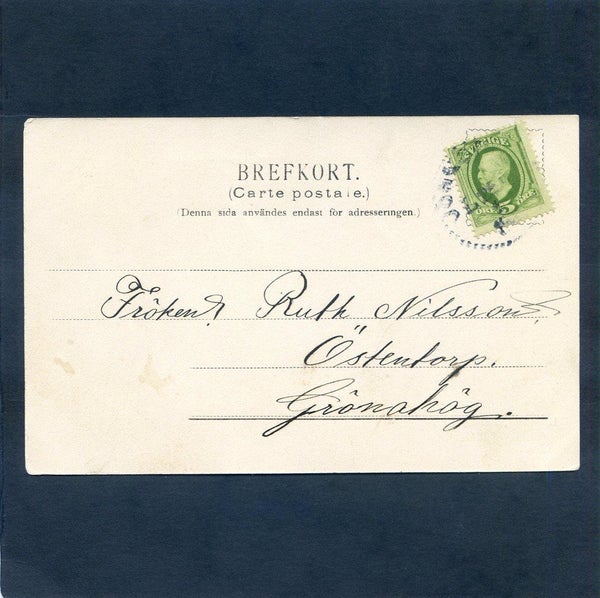 BREFKORT.
(Carte postale.)
(Denna sida användes endast för adresseringen.)
SVERIGE
ÖRE 5 ÖRE
Fröken
Ruth Nilsson
Östentorp.
Grönahög.